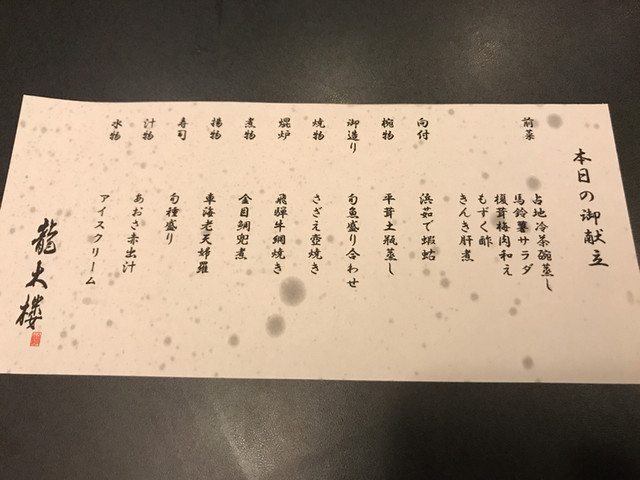 本日の御献立
前菜
占地冷茶碗蒸し
馬鈴薯サラダ
榎茸梅肉和え
もずく酢
きんき肝煮
向付
浜茹で蝦蛄
椀物
平茸土瓶蒸し
御造り
旬魚盛り合わせ
焼物
さざえ壺焼き
焜炉
飛騨牛網焼き
煮物
金目鯛兜煮
揚物
車海老天婦羅
寿司
旬種盛り
汁物
あおさ赤出汁
水物
アイスクリーム
龍大楼